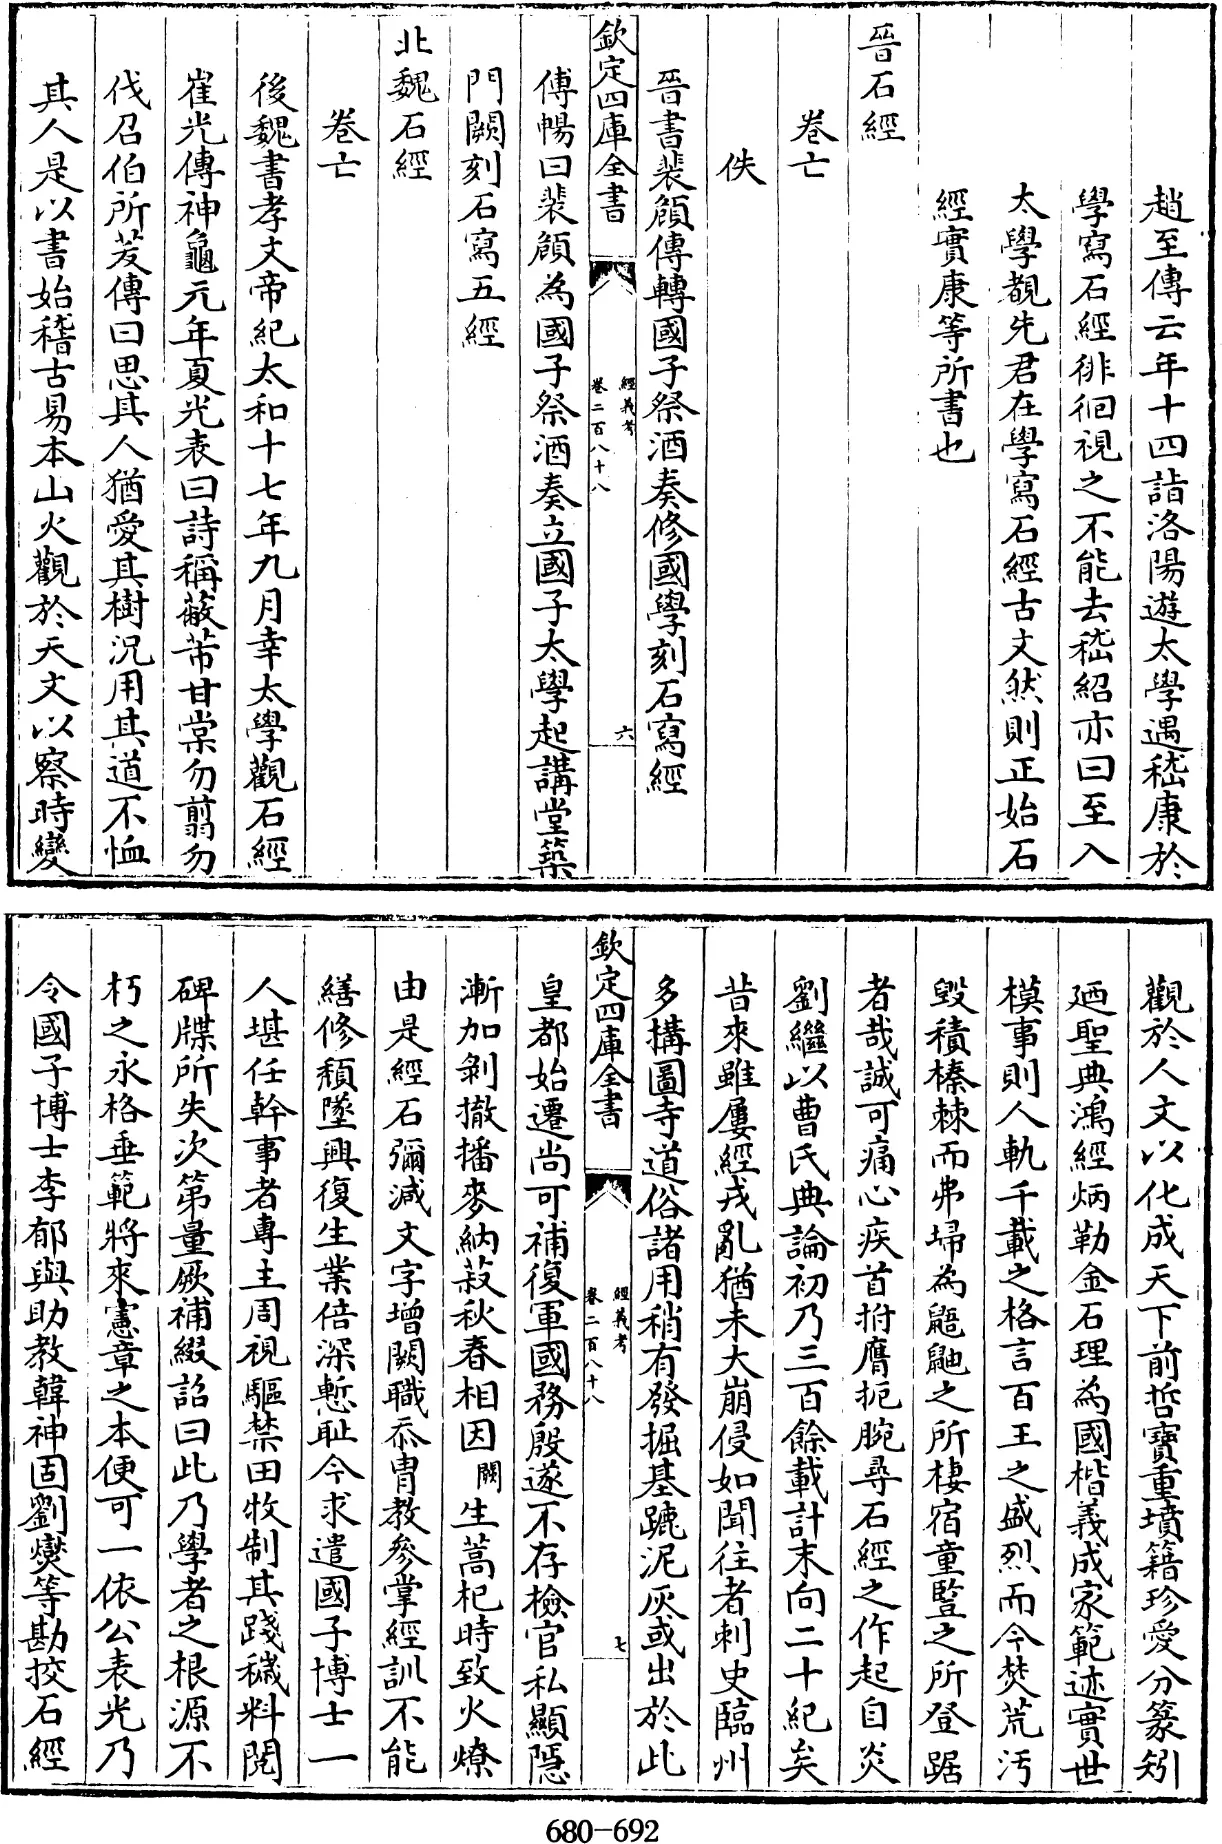 趙至傳云年十四詣洛陽遊太學遇嵇康於
學寫石經徘徊視之不能去嵇紹亦曰至入
太學覩先君在學寫石經古文然則正始石
經實康等所書也
晉石經
卷亡
佚
晉書裴頠傳轉國子祭酒奏修國學刻石寫經
欽定四庫全書
經義考
卷二百八十八
六
傅暢曰裴頠為國子祭酒奏立國子太學起講堂築
門闕刻石寫五經
北魏石經
卷亡
後魏書孝文帝紀太和十七年九月幸太學觀石經
崔光傳神龜元年夏光表曰詩稱蔽芾甘棠勿翦勿
伐召伯所茇傳曰思其人猶愛其樹況用其道不恤
其人是以書始稽古易本山火觀於天文以察時變
觀於人文以化成天下前哲寶重墳籍珍愛分篆矧
廼聖典鴻經炳勒金石理為國楷義成家範迹實世
模事則人軌千載之格言百王之盛烈而今焚荒汚
毀積榛棘而弗埽為鼯鼬之所棲宿童豎之所登踞
者哉誠可痛心疾首拊膺扼腕尋石經之作起自炎
劉繼以曹氏典論初乃三百餘載計末向二十紀矣
昔來雖屢經戎亂猶未大崩侵如聞往者刺史臨州
多搆圖寺道俗諸用稍有發掘基蹠泥灰或出於此
欽定四庫全書
經義考
卷二百八十八
七
皇都始遷尚可補復軍國務殷遂不存檢官私顯隱
漸加剝撤播麥納菽秋春相因闕生蒿杞時致火燎
由是經石彌減文字增闕職忝胄教參掌經訓不能
繕修頹墜興復生業倍深慙耻今求遣國子博士一
人堪任幹事者專主周視驅禁田牧制其踐穢料閱
碑牒所失次第量厥補綴詔曰此乃學者之根源不
朽之永格垂範將來憲章之本便可一依公表光乃
令國子博士李郁與助教韓神固劉燮等勘挍石經
680-692